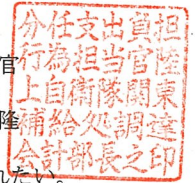 分任支出負担
行為担当官陸
上自衛隊関東
補給処調達
会計部長之印
官
れたい。